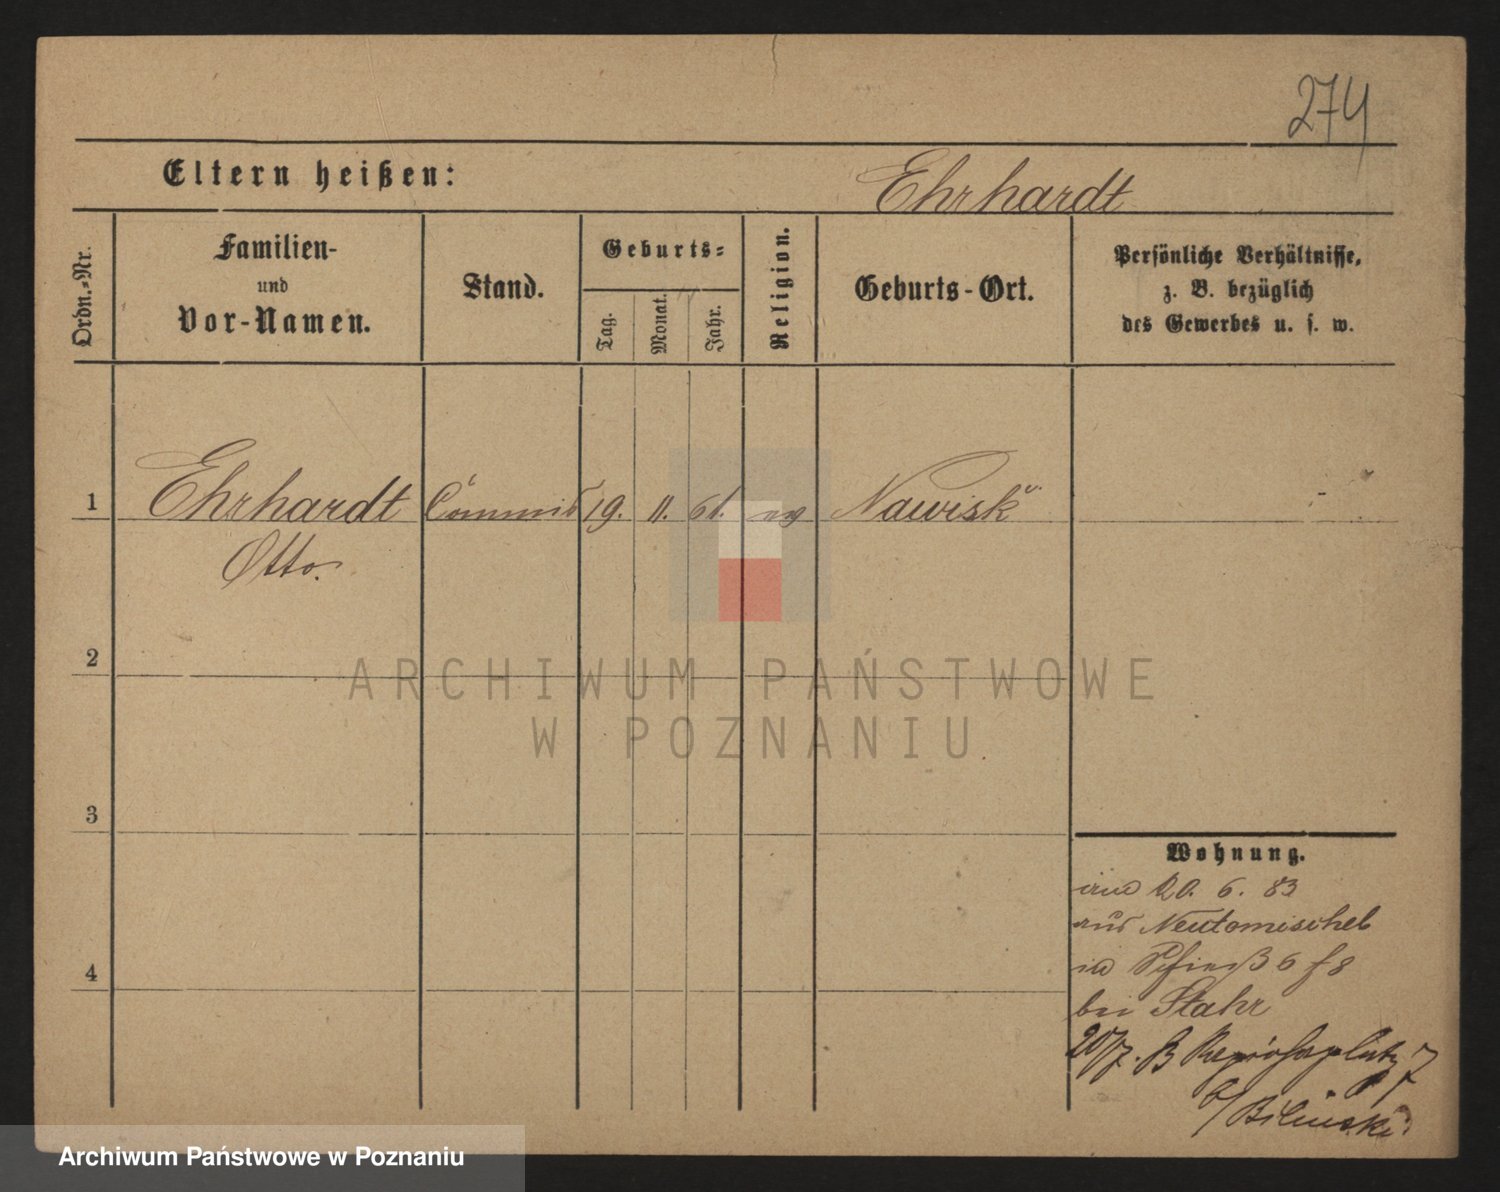 274
Eltern heißen:
Ehrhardt
Ordn.-Nr.
Familien-
und
Vor-Namen.
Stand.
Geburts-
Tag.
Monat.
Jahr.
Religion.
Geburts-Ort.
Persönliche Verhältnisse,
z. B. bezüglich
des Gewerbes u. s. w.
1 Ehrhardt Commis 19. 11. 61. ev Nawisk
Otto.
2
ARCHIWUM PAŃSTWOWE
W POZNANIU
3
4
Wohnung.
20. 6. 83
aus Neutomischel
in 6 f 8
bei Stahr
20/7. 83 7
b/ Bilinski
Archiwum Państwowe w Poznaniu